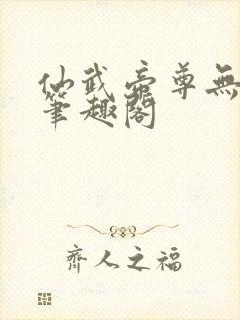 仙武帝尊無
筆趣閣
齊人之福